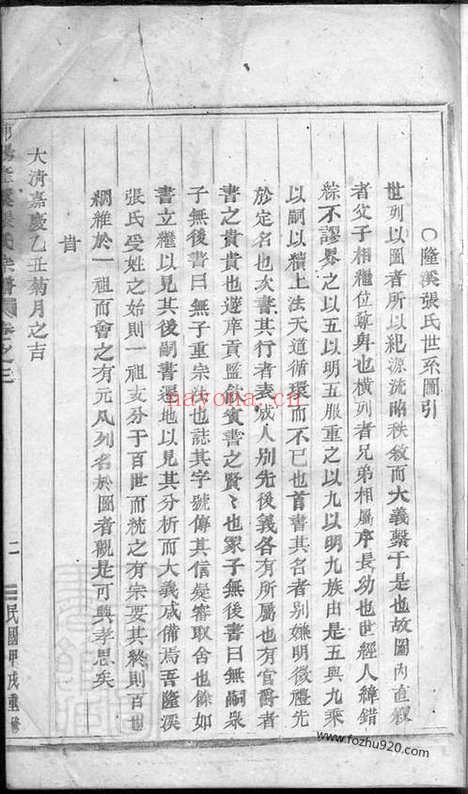 ○隆溪張氏世系圖引
世列以圖者所以紀源流昭秩敘而大義繫于是也故圖內直視
者父子相繼位尊卑也橫列者兄弟相屬序長幼也世經人緯錯
綜不謬界之以五以明五服重之以九以明九族由是五與九乘
以嗣以續上法天道循環而不已也首書其名者別嫌明微禮先
於定名也次書其行者表成人別先後義各有所屬也有官爵者
書之貴貴也選庠貢監飲賓書之賢〻也冢子無後書曰無嗣衆
子無後書曰無子重宗法也誌其字號傳其信疑審取舍也餘如
書立繼以見其後嗣書遷地以見其分析而大義咸備焉吾隆溪
張氏受姓之始則一祖支分于百世而統之有宗要其終則百世
綱維於一祖而會之有元凡列名於圖者觀是可興孝思矣
旹
大清嘉慶乙丑菊月之吉
張氏宗譜 卷之三
二
民國甲戌重修
nayona.cn
www.fozhu920.com